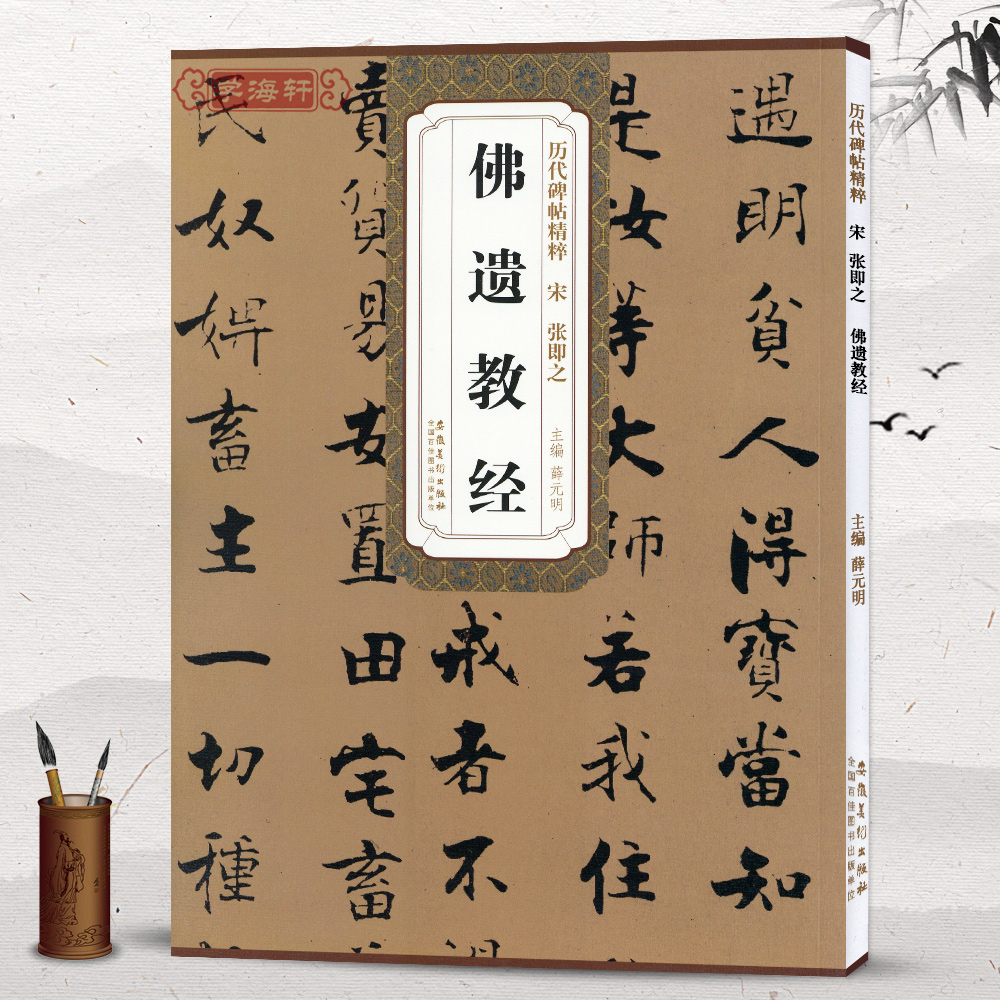 学海轩
历代碑帖精粹 宋 张即之
主编 薛元明
佛遗教经
安徽美术出版社
全国百佳图书出版单位
遇明貧人得寶當知
是汝等大師若我住
戒者不
賣貿易安置田宅畜
民奴婢畜生一切種
历代碑帖精粹 宋 张即之 佛遗教经
主编 薛元明
安徽美术出版社
全国百佳图书出版单位